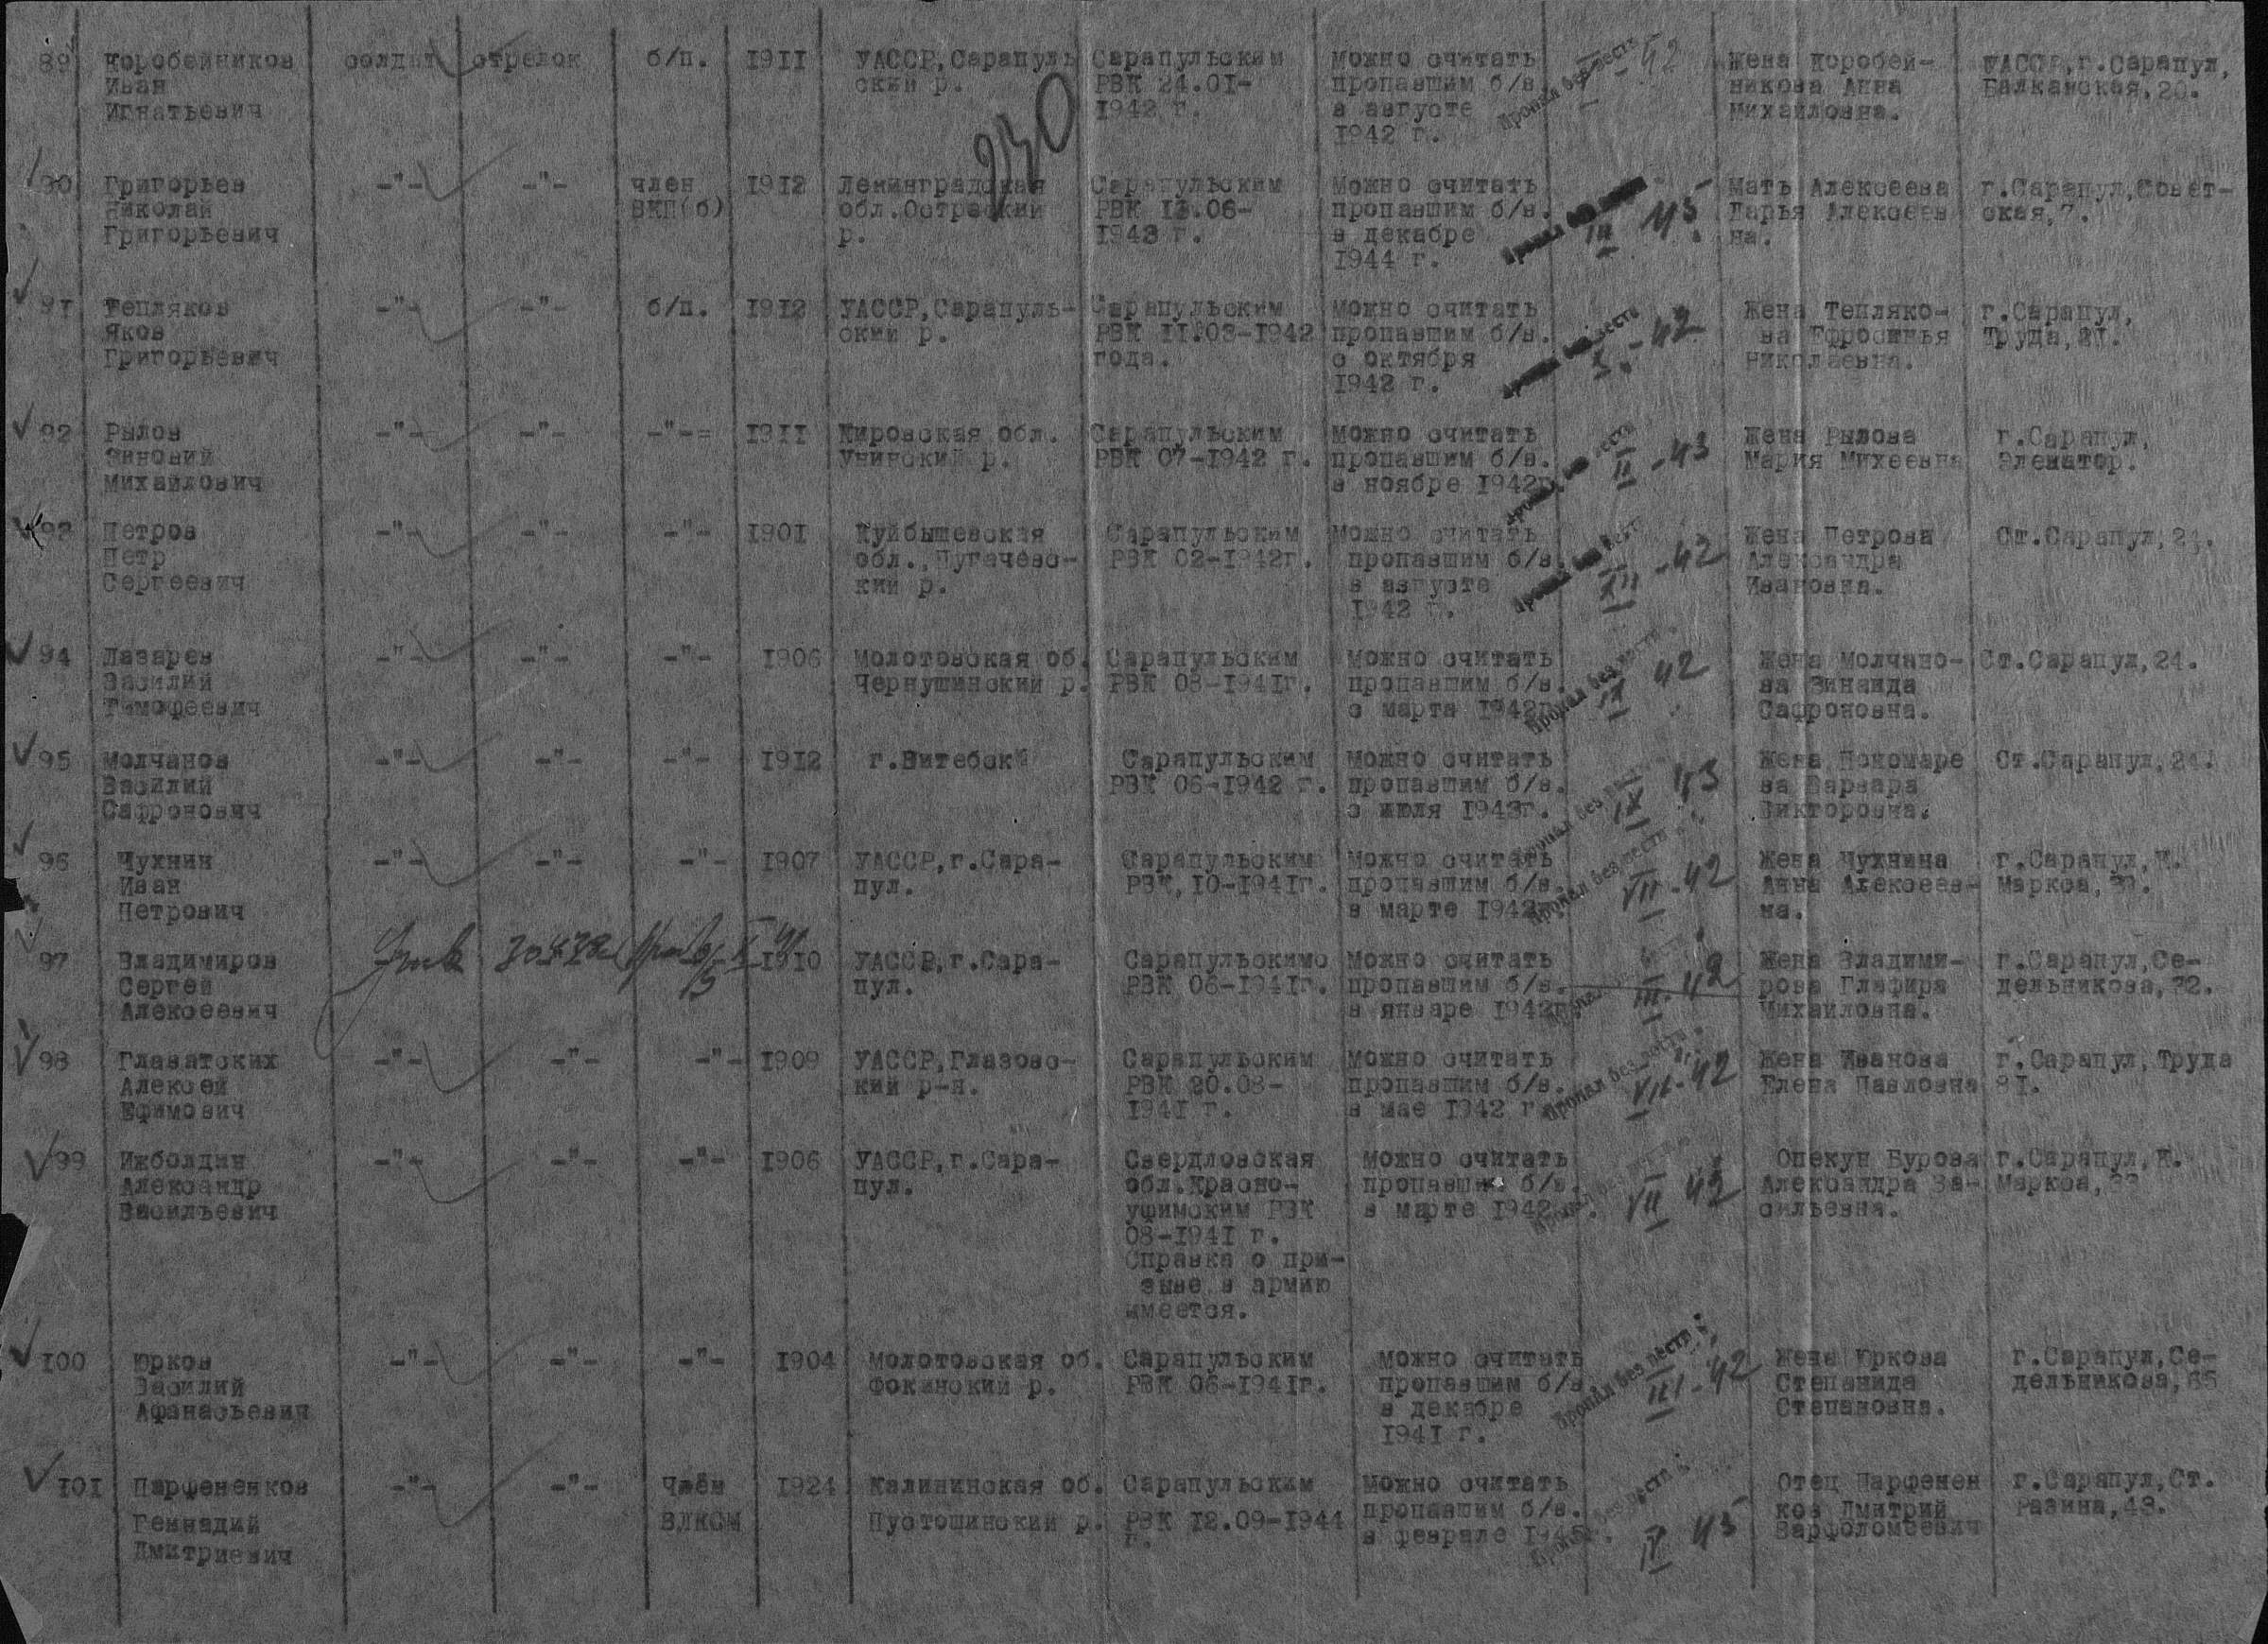 89 Коробейников солдат стрелок б/п. 1911 УАССР,Сарапуль Сарапульским Можно считать Жена Коробей- УАССР,г.Сарапул,
Иван ский р. РВК 24.01- пропавшим б/в. Пропал без вести - 42 никова Анна Балканская,20.
Игнатьевич 1942 г. в августе Михайловна.
1942 г.
930
90 Григорьев -"- -"- член 1912 Ленинградская Сарапульским Можно считать Мать Алексеева г.Сарапул,Совет-
Николай ВКП(б) обл.Островский РВК 13.06- пропавшим б/в. Пропал III 45 Дарья Алексеев ская,7.
Григорьевич р. 1943 г. в декабре на.
1944 г.
91 Тепляков -"- -"- б/п. 1912 УАССР,Сарапуль- Сарапульским Можно считать Жена Тепляко- г.Сарапул,
Яков ский р. РВК 11.03-1942 пропавшим б/в. Пропал без вести X.-42 ва Ефросинья Труда,21.
Григорьевич года. с октября Николаевна.
1942 г.
92 Рылов -"- -"- -"-= 1911 Кировская обл. Сарапульским Можно считать Жена Рылова г.Сарапул,
Зиновий Унинский р. РВК 07-1942 г. пропавшим б/в. Пропал без вести II -43 Мария Михеевна Элеватор.
Михайлович в ноябре 1942г.
93 Петров -"- -"- -"- 1901 Куйбышевская Сарапульским Можно считать Жена Петрова Ст.Сарапул,24.
Петр обл.,Пугачевс- РВК 02-1942г. пропавшим б/в. Пропал без вести XII -42 Александра
Сергеевич кий р. в августе Ивановна.
1942 г.
94 Лазарев -"- -"- -"- 1906 Молотовская об. Сарапульским Можно считать Жена Молчано- Ст.Сарапул,24.
Василий Чернушинский р. РВК 08-1941г. пропавшим б/в. Пропал без вести 42 ва Зинаида
Тимофеевич с марта 1942г. Сафроновна.
95 Молчанов -"- -"- -"- 1912 г.Витебск Сарапульским Можно считать Жена Пономаре Ст.Сарапул,24.
Василий РВК 06-1942 г. пропавшим б/в. Пропал без вести IX 43 ва Варвара
Сафронович с июля 1943г. Викторовна.
96 Чухнин -"- -"- -"- 1907 УАССР,г.Сара- Сарапульским Можно считать Жена Чухнина г.Сарапул,К.
Иван пул. РВК,10-1941г. пропавшим б/в. Пропал без вести VII -42 Анна Алексеев- Маркса,
Петрович в марте 1942г. на.
97 Владимиров 1910 УАССР,г.Сара- Сарапульскимо Можно считать Жена Владими- г.Сарапул,Се-
Сергей пул. РВК 06-1941г. пропавшим б/в. III. 42 рова Глафира дельникова,32.
Алексеевич в январе 1942г. Михайловна.
98 Главатских -"- -"- -"- 1909 УАССР,Глазовс- Сарапульским Можно считать Жена Иванова г.Сарапул,Труда
Алексей кий р-н. РВК 20.08- пропавшим б/в. Пропал без вести VIII-42 Елена Павловна 81.
Ефимович 1941 г. в мае 1942 г.
99 Ижболдин -"- -"- -"- 1906 УАССР,г.Сара- Свердловская Можно считать Опекун Бурова г.Сарапул,К.
Александр пул. обл.Красно- пропавшим б/в. Пропал без вести VII 42 Александра Ва- Маркса,
Васильевич уфимским РВК в марте 1942 г. сильевна.
08-1941 г.
Справка о при-
зыве в армию
имеется.
100 Юрков -"- -"- -"- 1904 Молотовская об. Сарапульским Можно считать Жена Юркова г.Сарапул,Се-
Василий Фокинский р. РВК 06-1941г. пропавшим б/в Пропал без вести III-42 Степанида дельникова,65
Афанасьевич в декабре Степановна.
1941 г.
101 Парфененков -"- -"- Член 1924 Калининская об. Сарапульским Можно считать Отец Парфенен г.Сарапул,Ст.
Геннадий ВЛКСМ Пустошинский р. РВК 12.09-1944 пропавшим б/в. Пропал без вести IV 45 ков Дмитрий Разина,43.
Дмитриевич г. в феврале 1945г. Варфоломеевич